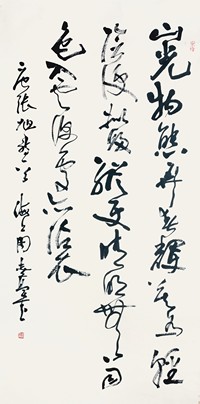 山光物態弄春輝莫為輕
陰便擬歸縱使晴明無雨
色入雲深處亦沾衣
唐張旭